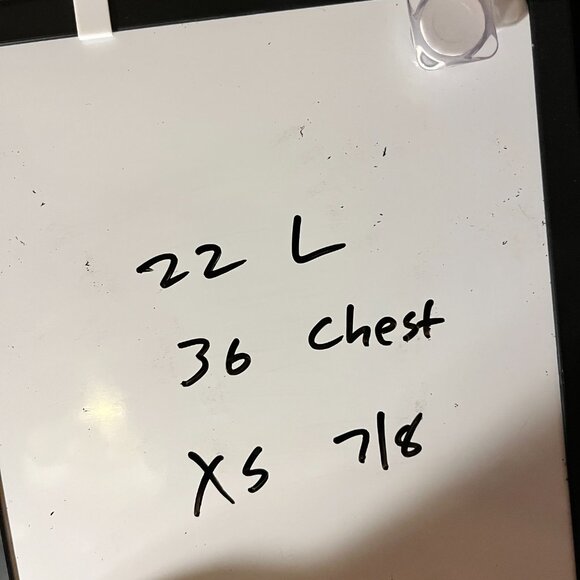 22 L
36 Chest
XS 7/8